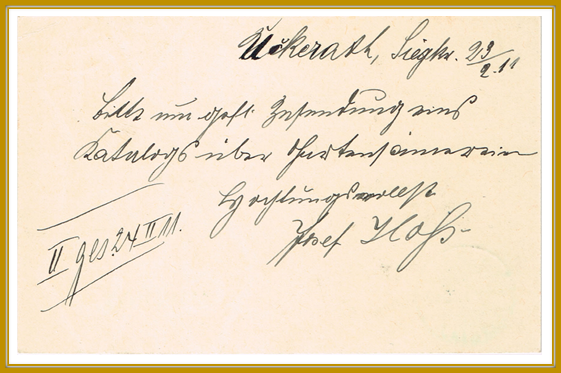 Uckerath, Siegkr. 23/2.11
Bitte um gefl. Zusendung eines
Katalogs über Gartensämereien
Hochtungsvollst
Josef
II ges. 24 II 11.